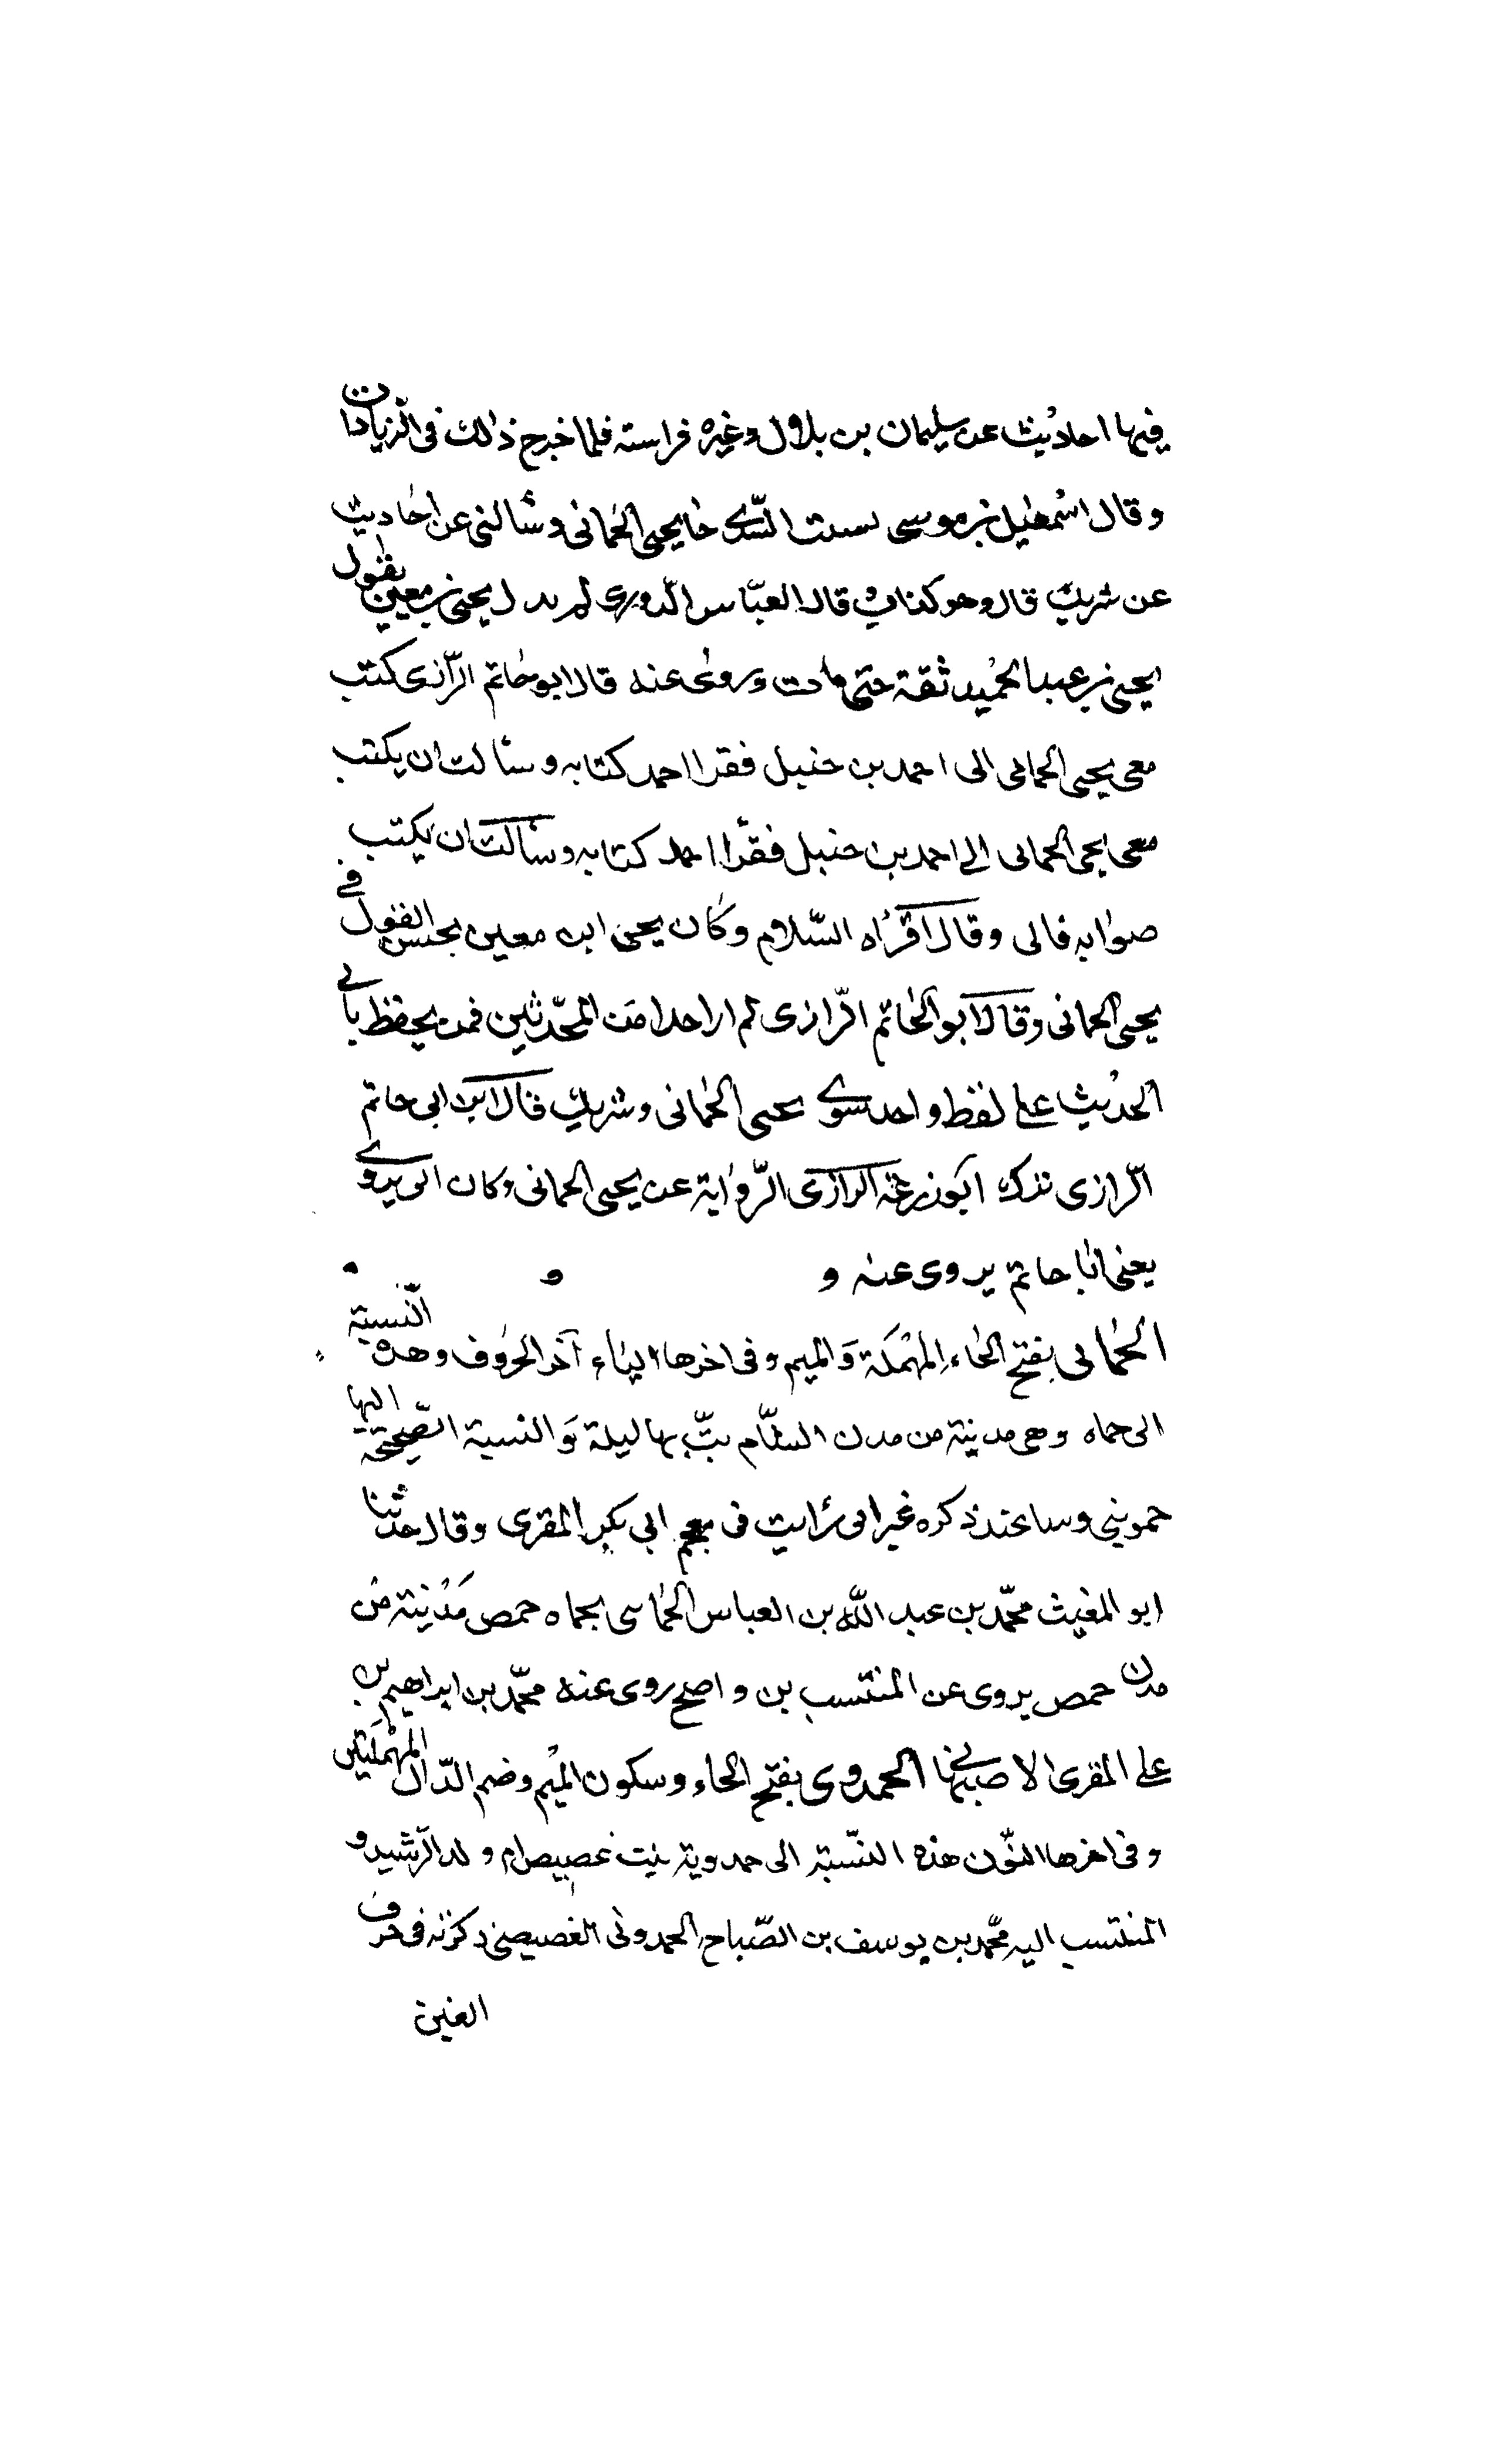 فيها احاديث عن سليمان بن بلال وغيره فراسته فلما خرج ذلك فى الزيادات
وقال اسمعيل بن موسى السدى جا يحيى الحمانى وسالنى عن احاديث
عن شريك قال وهو كذاب قال العباس الدورى لم يزل يحيى بن معين يقول
يحيى بن عبد الحميد ثقة حتى مات وروى عنه قال ابو حاتم الرازى كتب
معى يحيى الحمانى الى احمد بن حنبل فقرا احمد كتابه وسالت ان يكتب
معى يحيى الحمانى الى احمد بن حنبل فقرأ احمد كتابه وسالت ان يكتب
صوابه فالى وقال اقراه السلام وكان يحيى ابن معين يحسن القول فے
يحيى الحمانى وقال ابو الحاتم الرازى لم ار احدا من المحدثين فمن يحفظ ياتى
الحديث على لفظ واحد سوى يحيى الحمانى وشريك قال ابن ابى حاتم
الرازى ترك ابو زرعة الرازى الرواية عن يحيى الحمانى وكان ابى يروى
يعنى ابا حاتم يروى عنه و و
الحماتى بفتح الحاء المهملة والميم وفى اخرها الياء آخر الحروف وهذه النسبة
الى حماه وهى مدينة من مدن الشام بت بها ليلة والنسبة الصحيحة اليها
حموينى وساعند ذكره غير انى رأيت فى معجم ابى بكر المقرى وقال حدثنا
ابو المغيث محمد بن عبد الله بن العباس الحماسى بحماه حمص مدينة من
مدن حمص يروى عن المنتسب بن واضح روى عنه محمد بن ابراهيم بن
على المقرى الاصبهانى الحمدوى بفتح الحاء وسكون الميم وضم الدال المهملتين
وفى اخرها النون هذه النسبة الى حمدوية بنت غصيص ام ولد الرشيد و
المنتسب اليه محمد بن يوسف بن الصباح الحمدونى الغصيصى ذكرته فى حرف
الغين